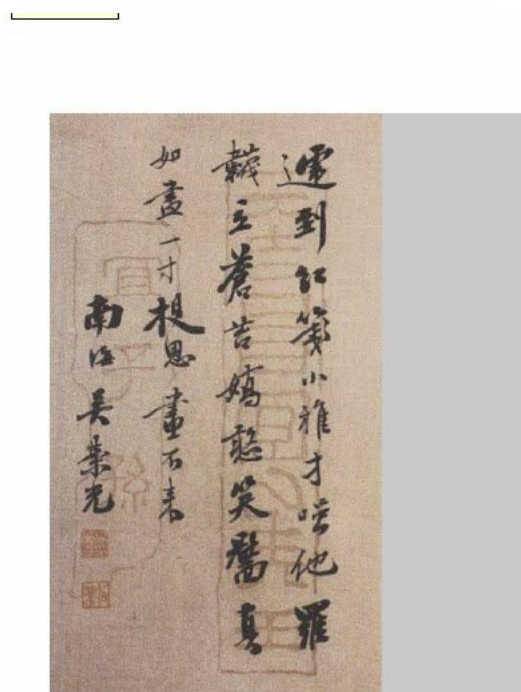 遞到紅箋小雅才咲他羅
韈立蒼苔嬌憨笑靨真
如畫一寸相思畫不來
南海吳榮光
宜子孫